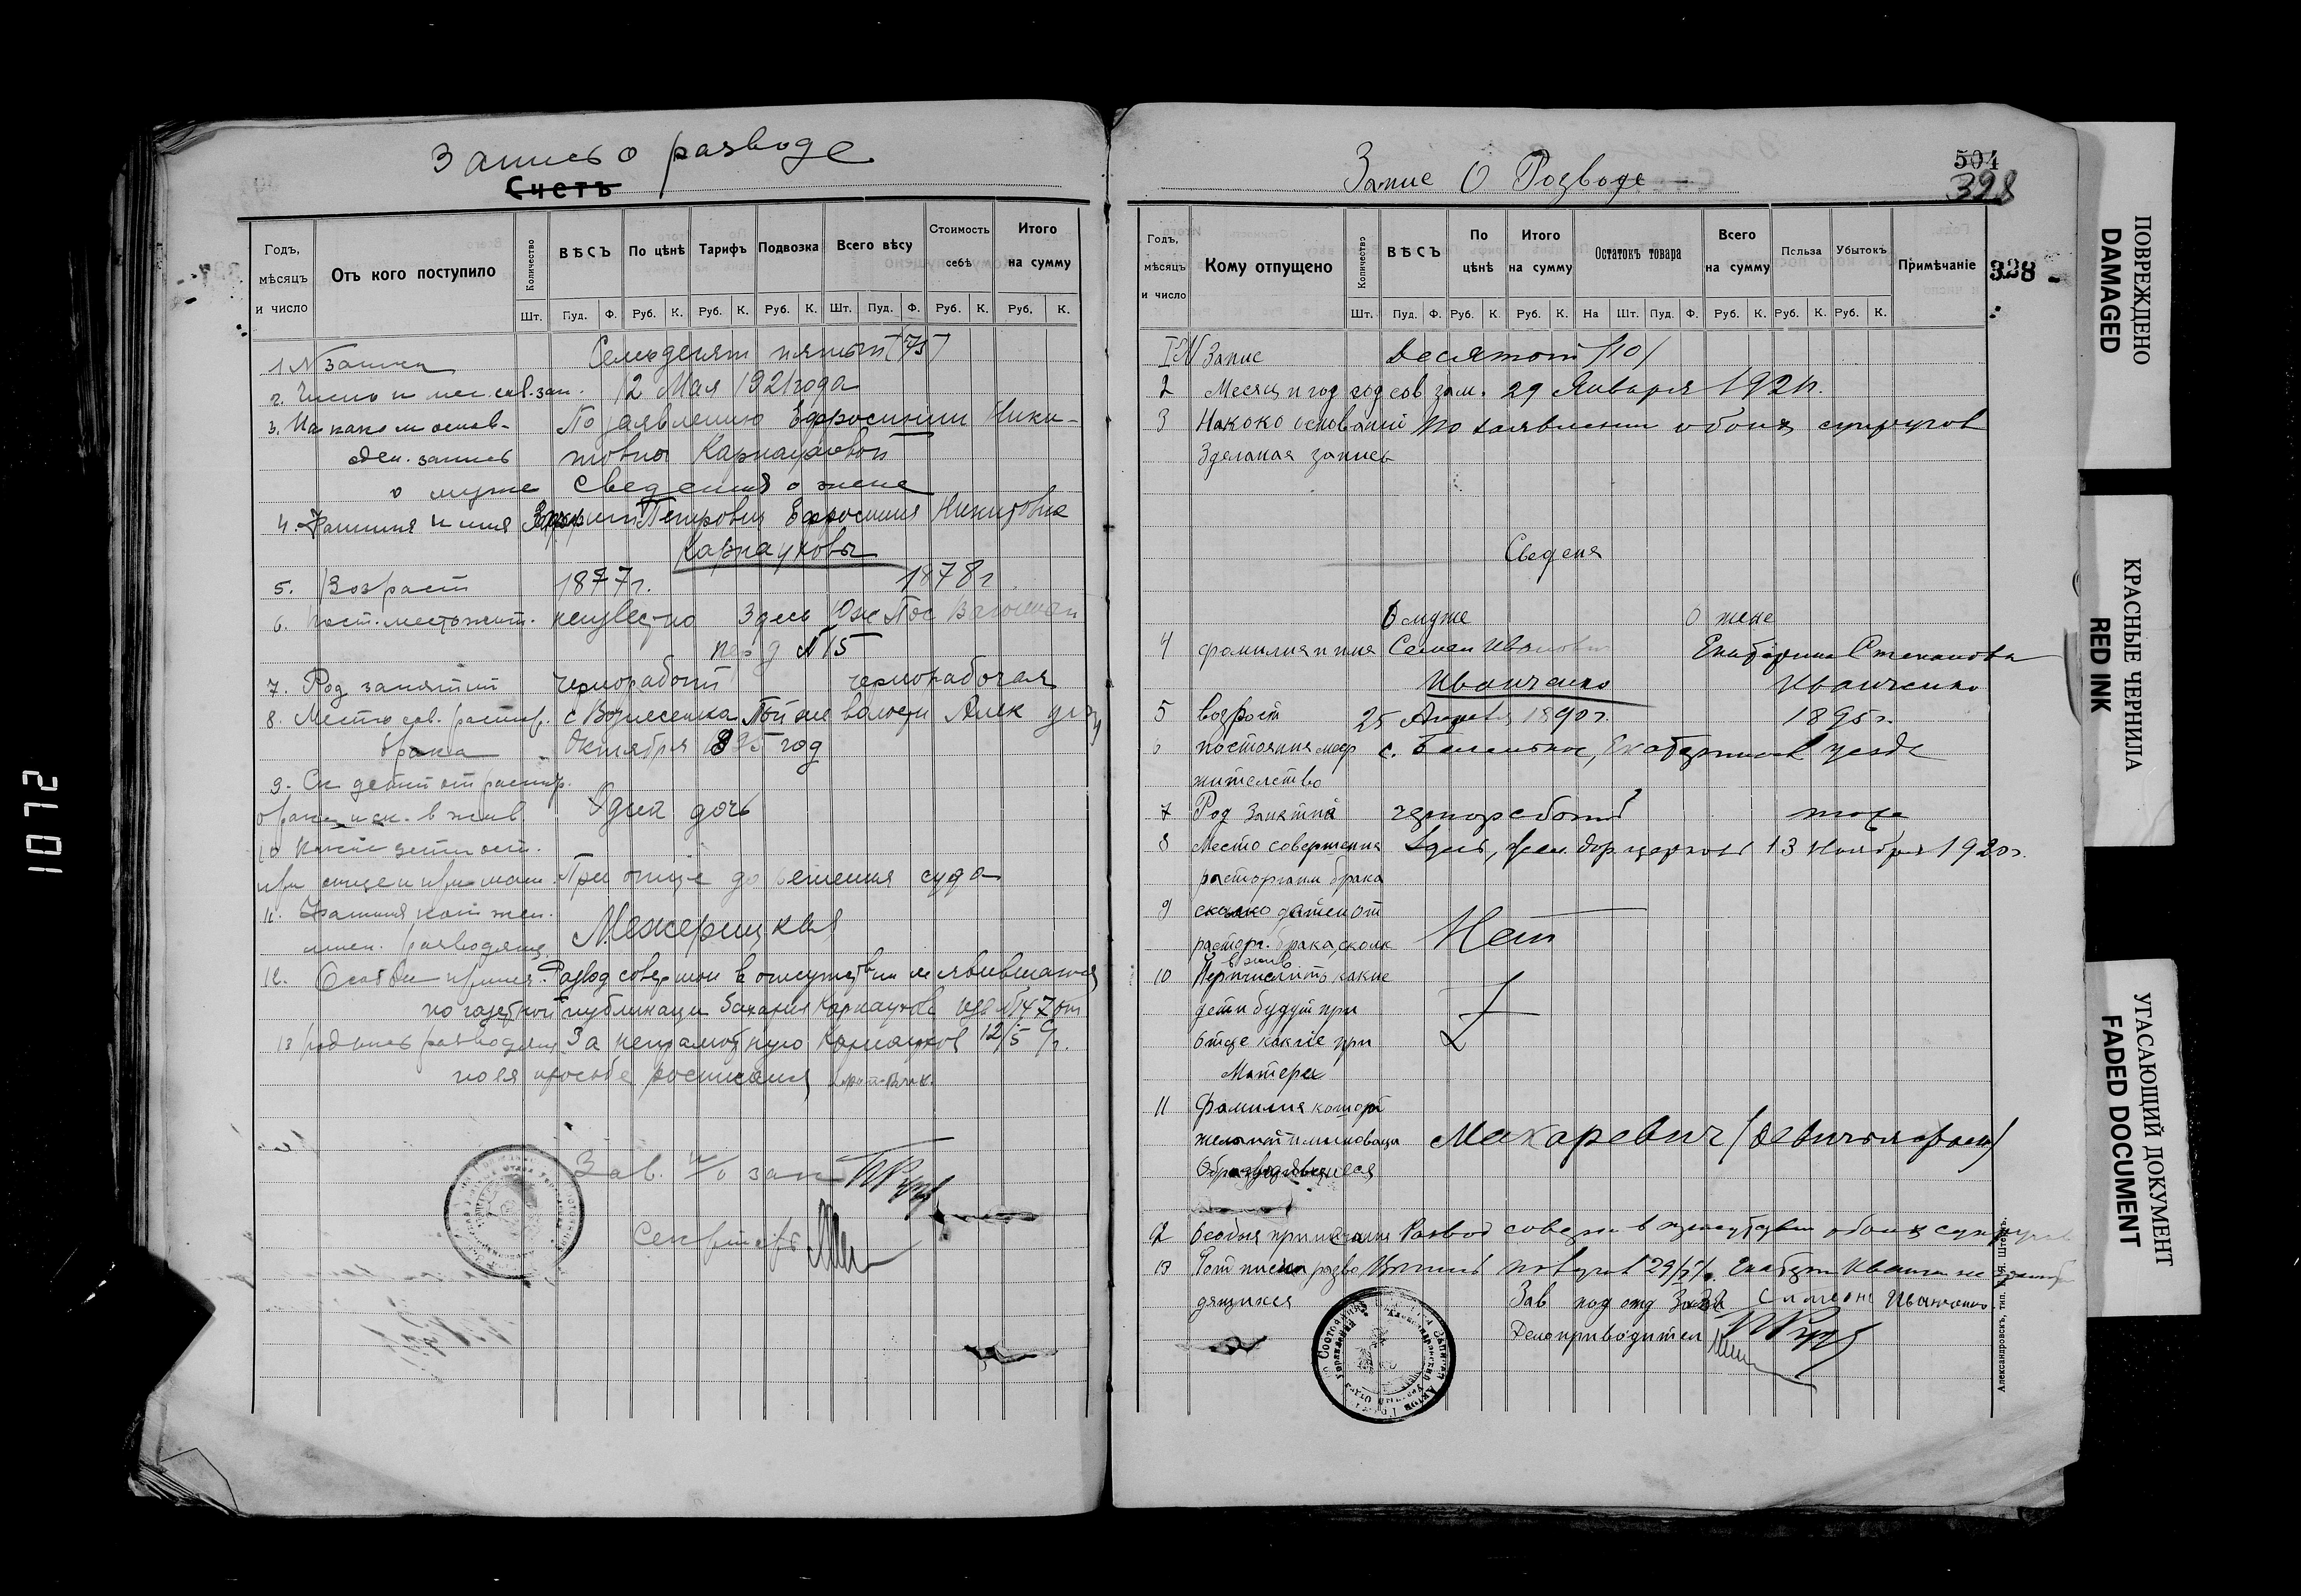 1072
Запись о разводе
Счетъ
Годъ, мѣсяцъ и число
Отъ кого поступило
Количество
ВѢСЪ
По цѣнѣ
Тарифъ
Подвозка
Всего вѣсу
Стоимость себѣ
Итого на сумму
Шт. Пуд. Ф. Руб. К. Руб. К. Руб. К. Шт. Пуд. Ф. Руб. К. Руб. К.
1 N записи Семьдесят пятый (75)
2. Число и мес. сов. зап. 12 Мая 1921 года
3. На каком основ- По заявлению Ефросинии Ники-
сдел. запись товны Карнауховой
о муже Сведения о жене
4. Фамилия и имя Петрович Ефросиния Никитовна
Карнауховы
5. Возраст 1877 г. 1878 г
6. Пост. местожит. неизвестно Здесь Юж Пос
пер д N 15
7. Род занятий чернорабочий чернорабочая
8. Место сов. растор. с Вознесенка Той же волости Алек уезд
брака Октября 895 год
9. Ск детей от растор.
брака и ск. в жив Одна дочь
10 Какие дети ост.
при отце и при мат. При отце до решения суда
11. Фамилия кот жел.
имен. разводящ. Межерицкая
12. Особые примеч. Развод совершон в отсутствии не явившагося
по газетной публикаци Захария Карнаухова N 47 от
13 подпись разводящ За неграмотную Карнаухов 12/5
по ея просьбе росписался
Зав. п/о зап
Секретарь
Запис О Розводе
504
398
328
Годъ, мѣсяцъ и число
Кому отпущено
Количество
ВѢСЪ
По цѣнѣ
Итого на сумму
Остатокъ товара
Всего на сумму
Польза
Убытокъ
Примѣчаніе
Шт. Пуд. Ф. Руб. К. Руб. К. На Шт. Пуд. Ф. Руб. К. Руб. К. Руб. К.
1 N Запис Десятой /10/
2 Месяц и год год сов зам. 29 Января 1921 г.
3 Накоко основаній по заявлении обоих супругов
Зделаная запись
Сведеня
О муже О жене
4 фамилия и имя Семен Иванович Екатерина Степановна
Иванченко Иванченко
5 возрост 25 1890 г. 1895 г.
6 постояння мест с. Беленькое, уезда
жителство
7 Род Занятий чернорабочий тоже
8 Место совершения Здесь, 13 Ноября 1920 г.
расторгани брака
9 сколко датей от
расторг. брака, сколк Нет
в жив
10 Перечислить какие
дети будут при
Отце какие при
Матере
11 Фамилия которой
желают именоваца Макаревич (девичья фам)
Образводявшиеся
12 Особыя примечания Развод соверш в присутствии обоих супругов
13 29/I
дящихся Зав под отд Симеон Иванченко
Делопроизводител
Александровскъ, тип.
ПОВРЕЖДЕНО
DAMAGED
КРАСНЫЕ ЧЕРНИЛА
RED INK
УГАСАЮЩИЙ ДОКУМЕНТ
FADED DOCUMENT